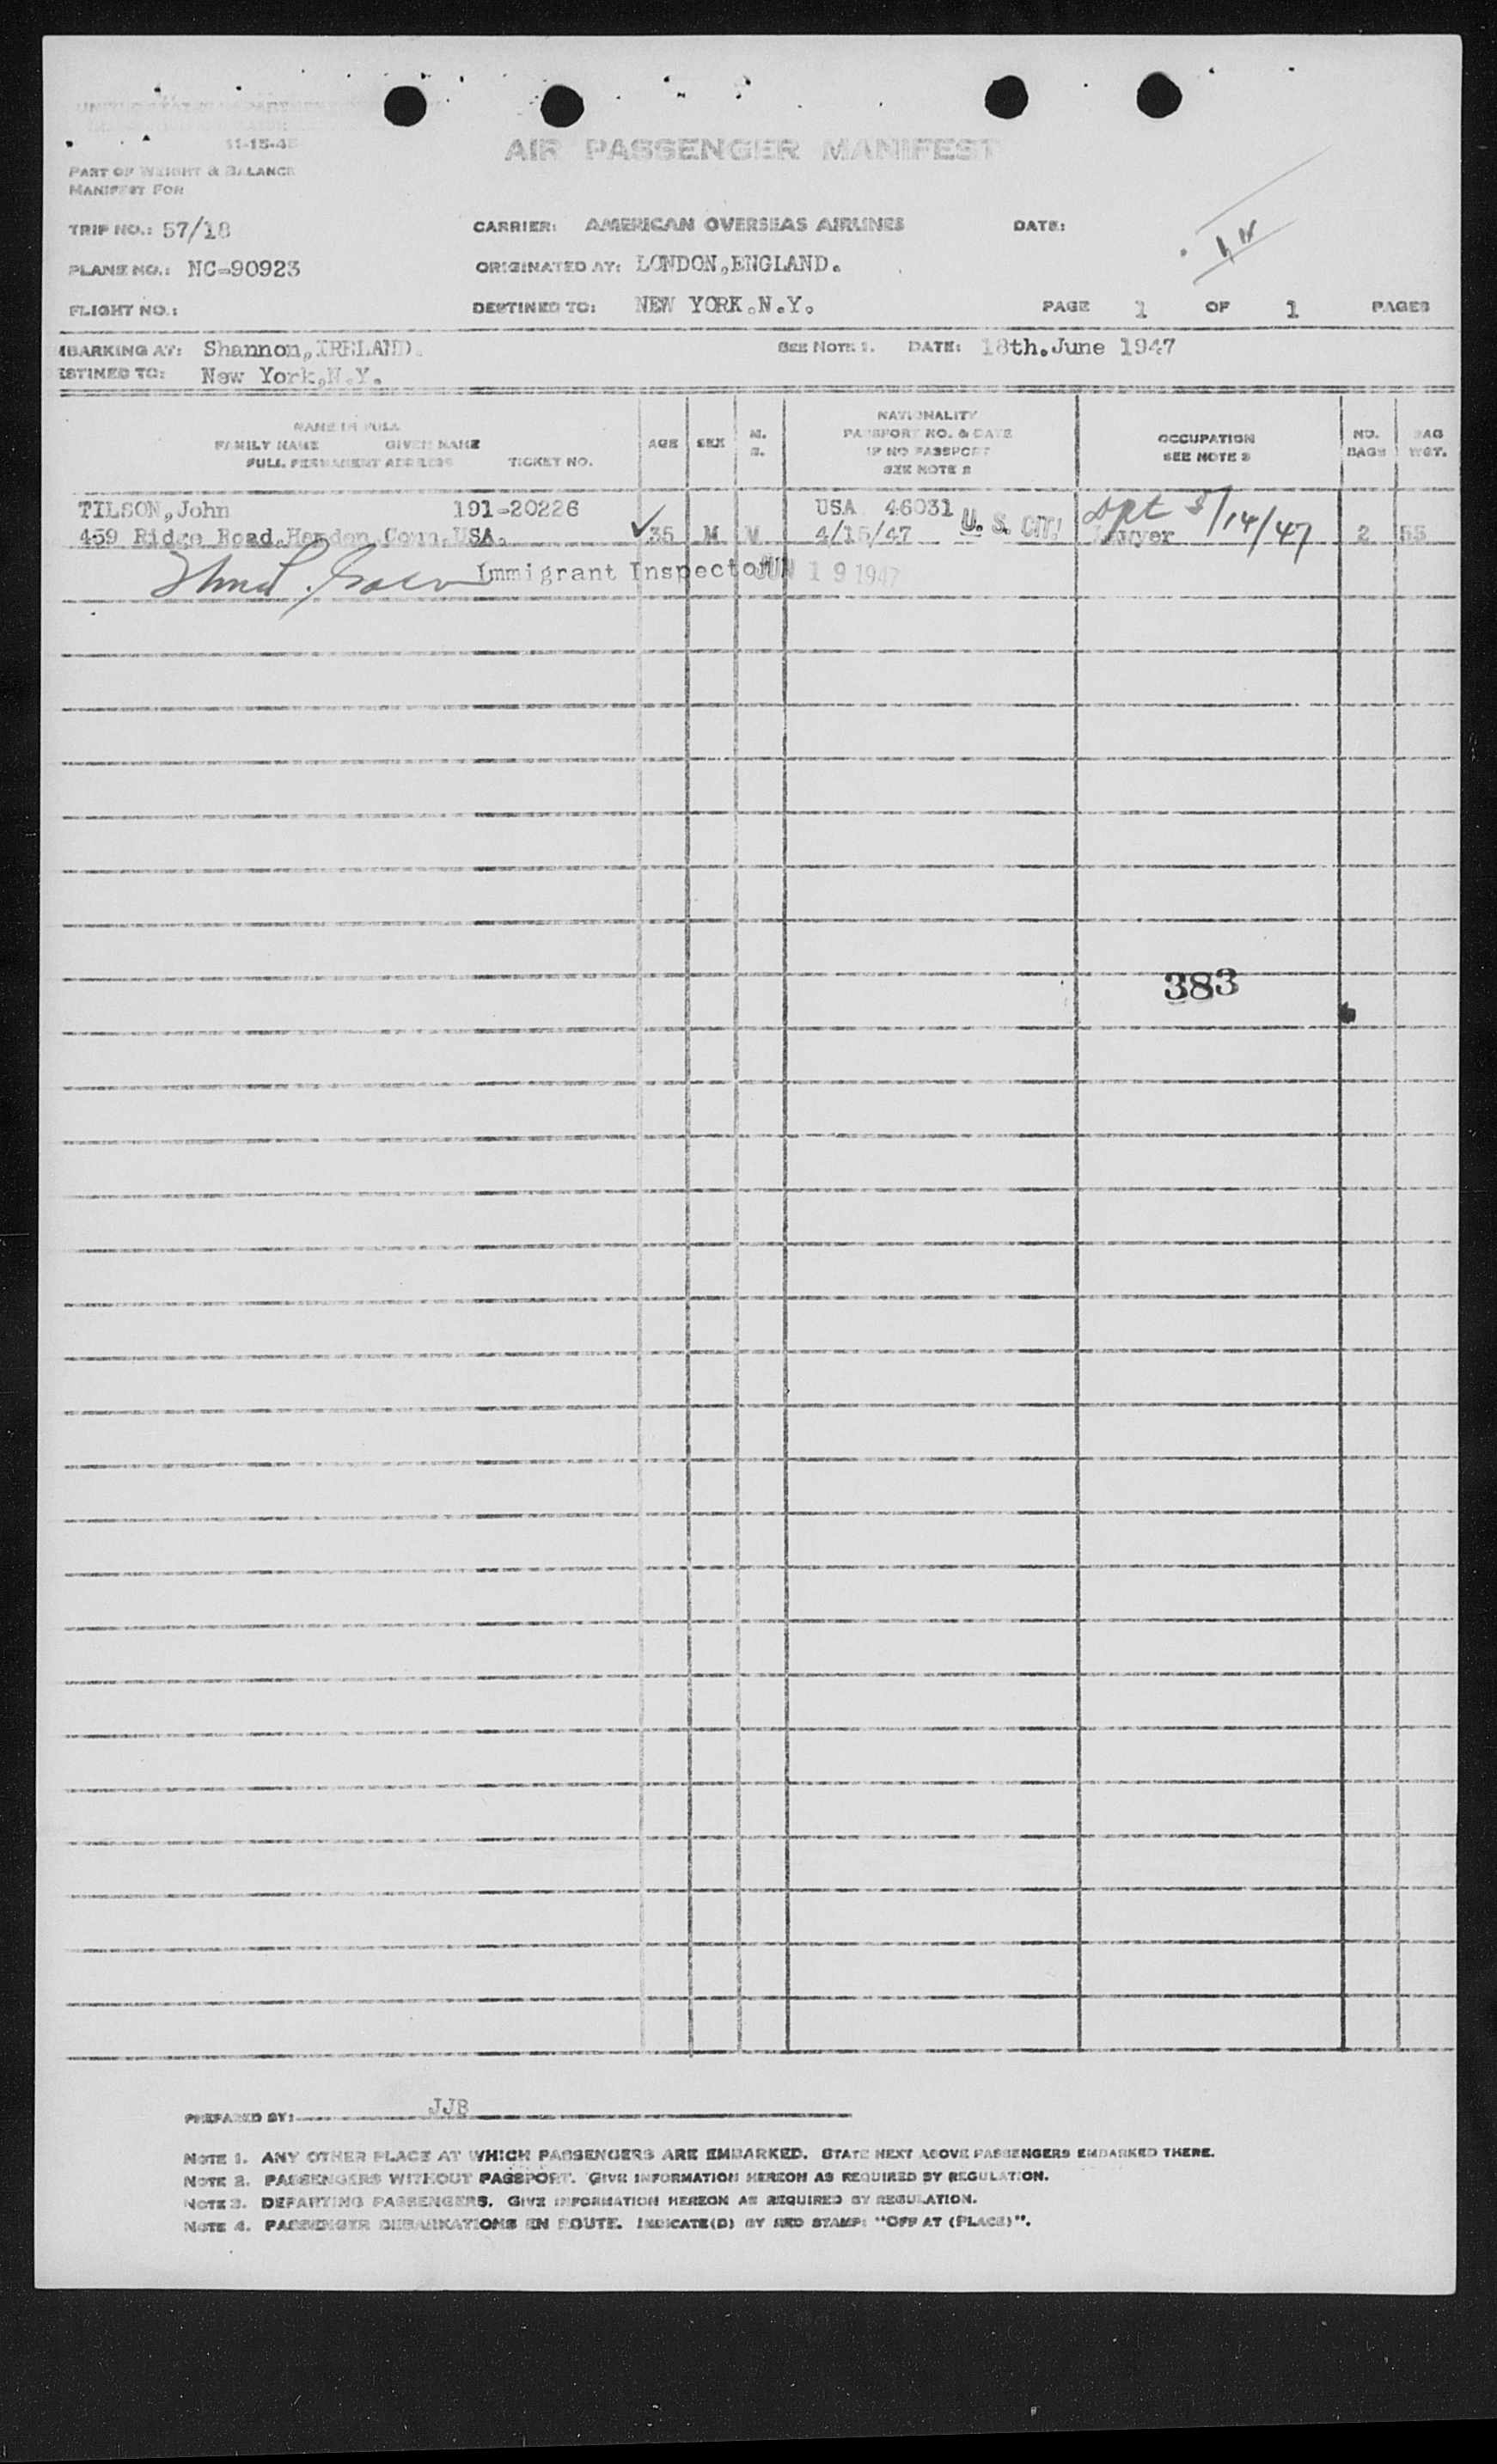 11-15-45
AIR PASSENGER MANIFEST
PART OF WEIGHT & BALANCE
MANIFEST FOR
TRIP NO.: 57/18 CARRIER: AMERICAN OVERSEAS AIRLINES DATE:
PLANE NO.: NC-90923 ORIGINATED AT: LONDON,ENGLAND.
FLIGHT NO.: DESTINED TO: NEW YORK.N.Y. PAGE 1 OF 1 PAGES
MBARKING AT: Shannon,IRELAND. SEE NOTE 1. DATE: 18th.June 1947
ESTINED TO: New York,N.Y.
NAME IN FULL
FAMILY NAME GIVEN NAME
FULL PERMANENT ADDRESS TICKET NO.
AGE SEX M. S.
NATIONALITY
PASSPORT NO. & DATE
IF NO PASSPORT
SEE NOTE 2
OCCUPATION
SEE NOTE 3
NO. BAGS
BAG WGT.
TILSON,John 191-20226 USA 46031 U. S. CIT! Dpt 5/14/47
459 Ridge Road,Hamden,Conn,USA. 35 M M 4/15/47 Lawyer 2 55
Immigrant Inspector JUN 19 1947
383
PREPARED BY: JJB
NOTE 1. ANY OTHER PLACE AT WHICH PASSENGERS ARE EMBARKED. STATE NEXT ABOVE PASSENGERS EMBARKED THERE.
NOTE 2. PASSENGERS WITHOUT PASSPORT. GIVE INFORMATION HEREON AS REQUIRED BY REGULATION.
NOTE 3. DEPARTING PASSENGERS. GIVE INFORMATION HEREON AS REQUIRED BY REGULATION.
NOTE 4. PASSENGER DEBARKATIONS EN ROUTE. INDICATE(D) BY RED STAMP: "OFF AT (PLACE)".